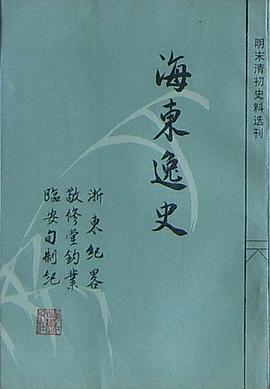 明末清初史料选刊
海東逸史
浙東紀畧
敬修堂钓業
臨安旬制紀